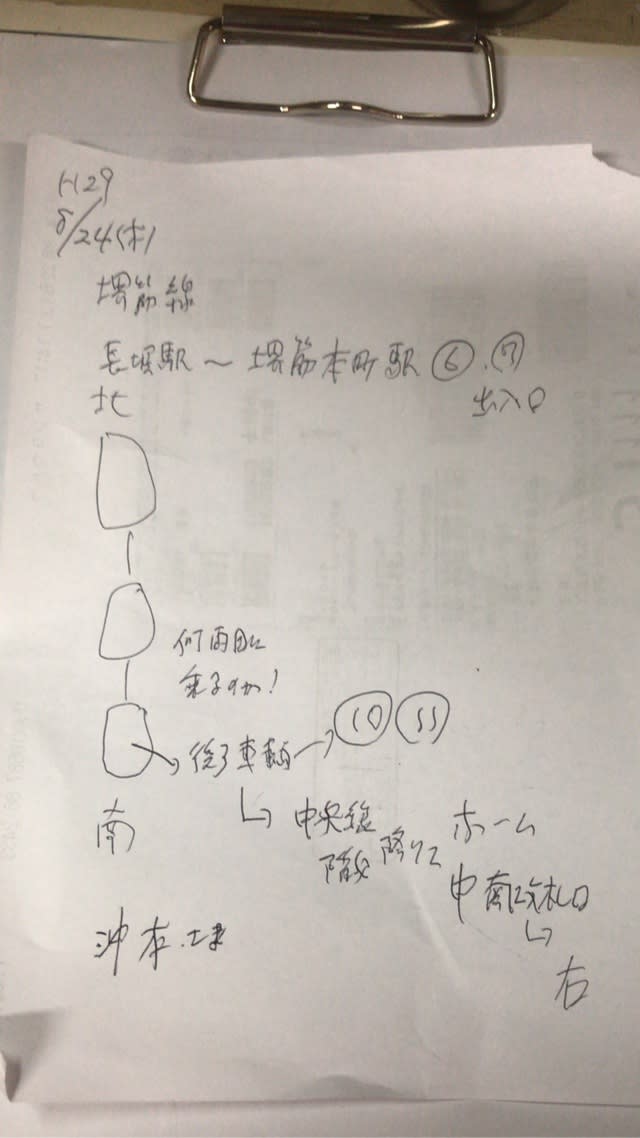 H29
8/24(木)
堺筋線
長堀駅～堺筋本町駅⑥.⑦
北
出入口
何両目に
乗るのか!
後ろ車両→⑩⑪
↳中央線
階段 降りて
ホーム
中南改札口
↳
右
南
沖本